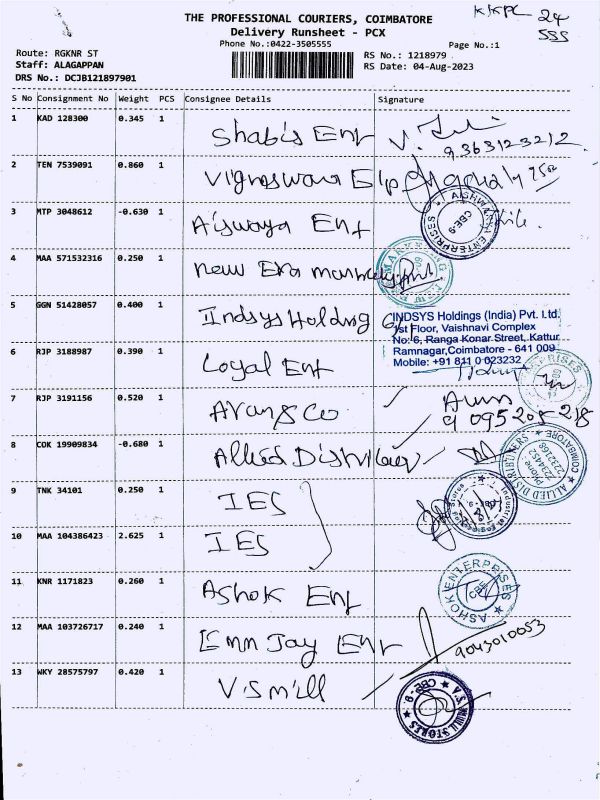 THE PROFESSIONAL COURIERS, COIMBATORE
Delivery Runsheet - PCX
Phone No.:0422-3505555
KKPC 24
555
Page No.:1
Route: RGKNR ST
Staff: ALAGAPPAN
DRS No.: DCJB121897901
RS No.: 1218979
RS Date: 04-Aug-2023
S No Consignment No Weight PCS Consignee Details Signature
1 KAD 128300 0.345 1 Shabis Ent
9363123212
2 TEN 7539091 0.860 1
3 MTP 3048612 -0.630 1 Aiswaya Ent
AISHWARYA ENTERPRISES CBE-9
4 MAA 571532316 0.250 1 New Era
5 GGN 51428057 0.400 1 Indsys Holding
INDSYS Holdings (India) Pvt. Ltd.
1st Floor, Vaishnavi Complex
No: 6, Ranga Konar Street, Kattur
Ramnagar,Coimbatore - 641 009
Mobile: +91 811 0 023232
6 RJP 3188987 0.390 1 Loyal Ent
7 RJP 3191156 0.520 1 Aran & Co
8 COK 19909834 -0.680 1 Allied
ALLIED DISTRIBUTERS COIMBATORE
Phone
2234452
2232168
9 TNK 34101 0.250 1 IES
10 MAA 104386423 2.625 1 IES
11 KNR 1171823 0.260 1 Ashok Ent
ASHOK ENTERPRISES CBE
12 MAA 103726717 0.240 1 Emm Jay Ent
9043010053
13 WKY 28575797 0.420 1 V.S mill
V.S.A MILL STORES CBE-9